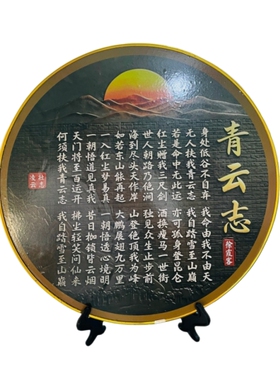 青云志
徐霞客
身处低谷不自弃 我命由我不由天
无人扶我青云志 我自踏雪至山巅
若是命中无此运 亦可孤身登昆仑
红尘赠我三尺剑 酒换瘦马一世街
世人朝路乃他涧 独见众生止步前
海到尽头天作岸 山登绝顶我为峰
如若东山能再起 大鹏展翅九万里
一入红尘梦易真 一朝悟透心境明
一朝悟道见真我 昔日枷锁皆云烟
天门将至百运开 拂尘轻笑问仙来
何须扶我青云志 我自踏雪至山巅